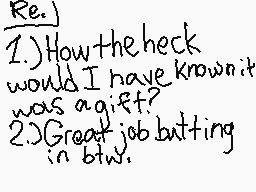 Re.)
1.) How the heck
would I have known it
was a gift?
2.) Great job butting
in btw.